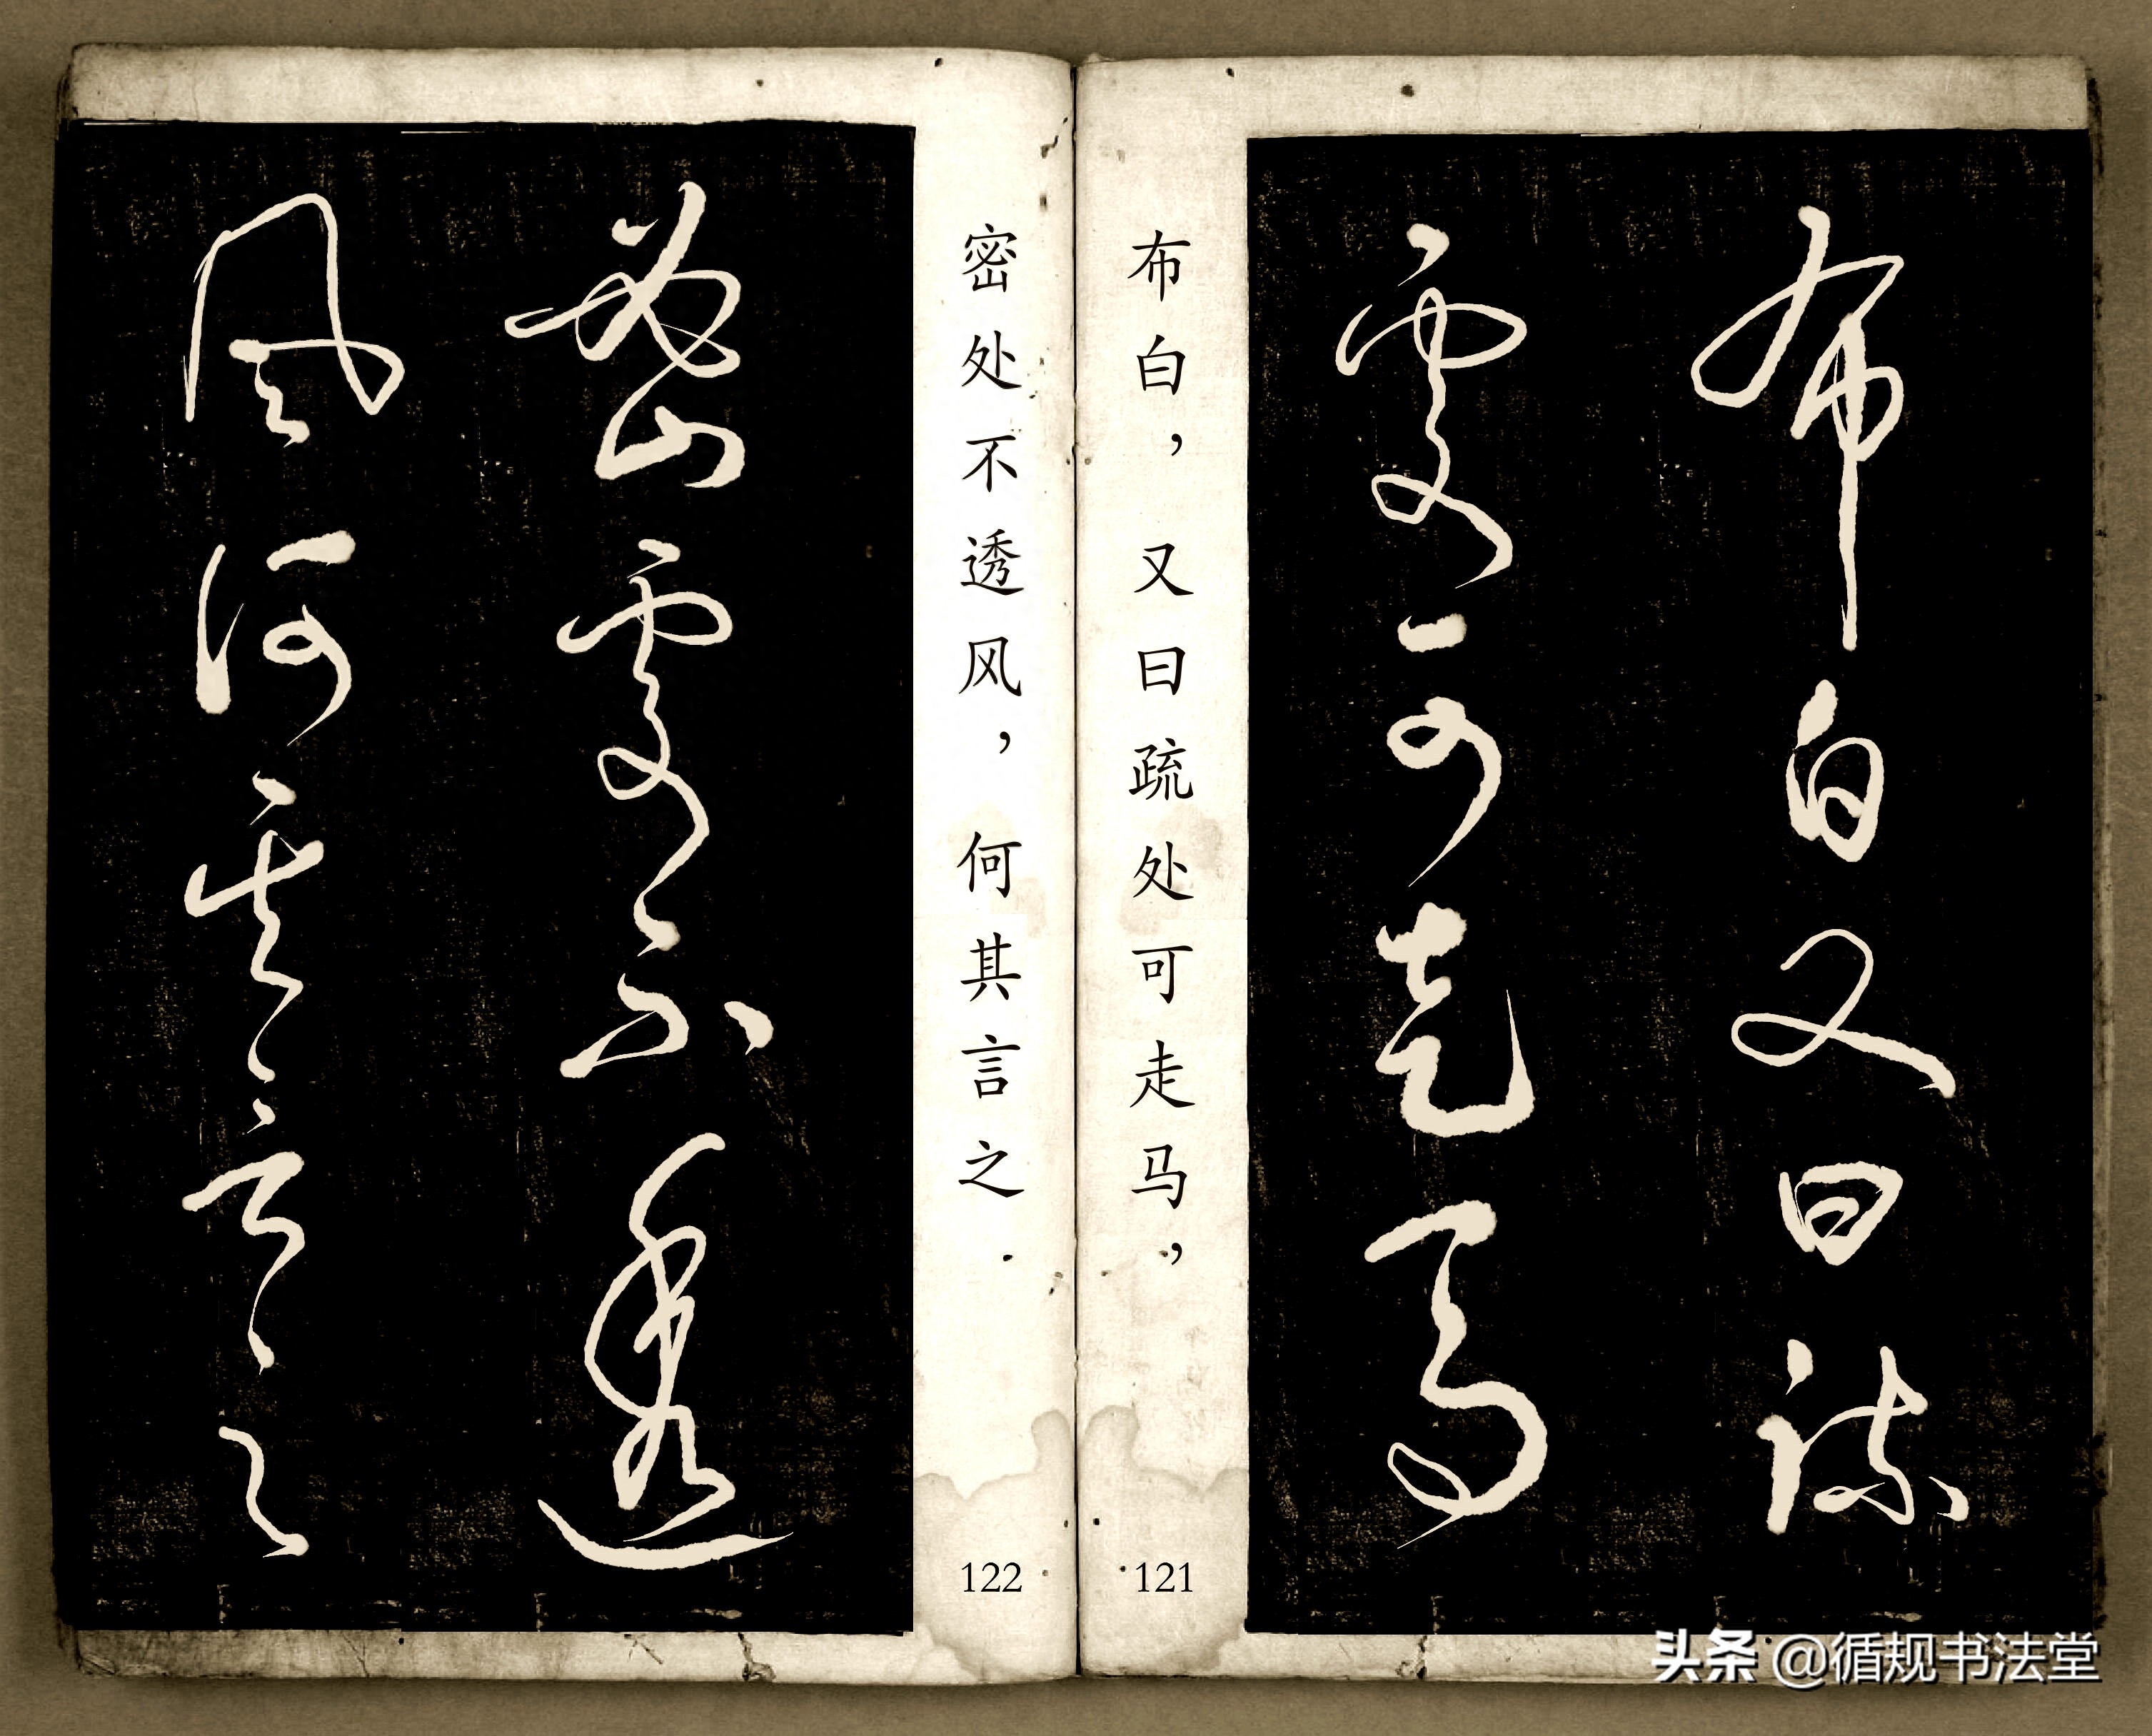 布白又曰疏
處可走馬
布白，又曰疏处可走马，
121
密處不透
風何其言之
密处不透风，何其言之.
122
头条 @循规书法堂